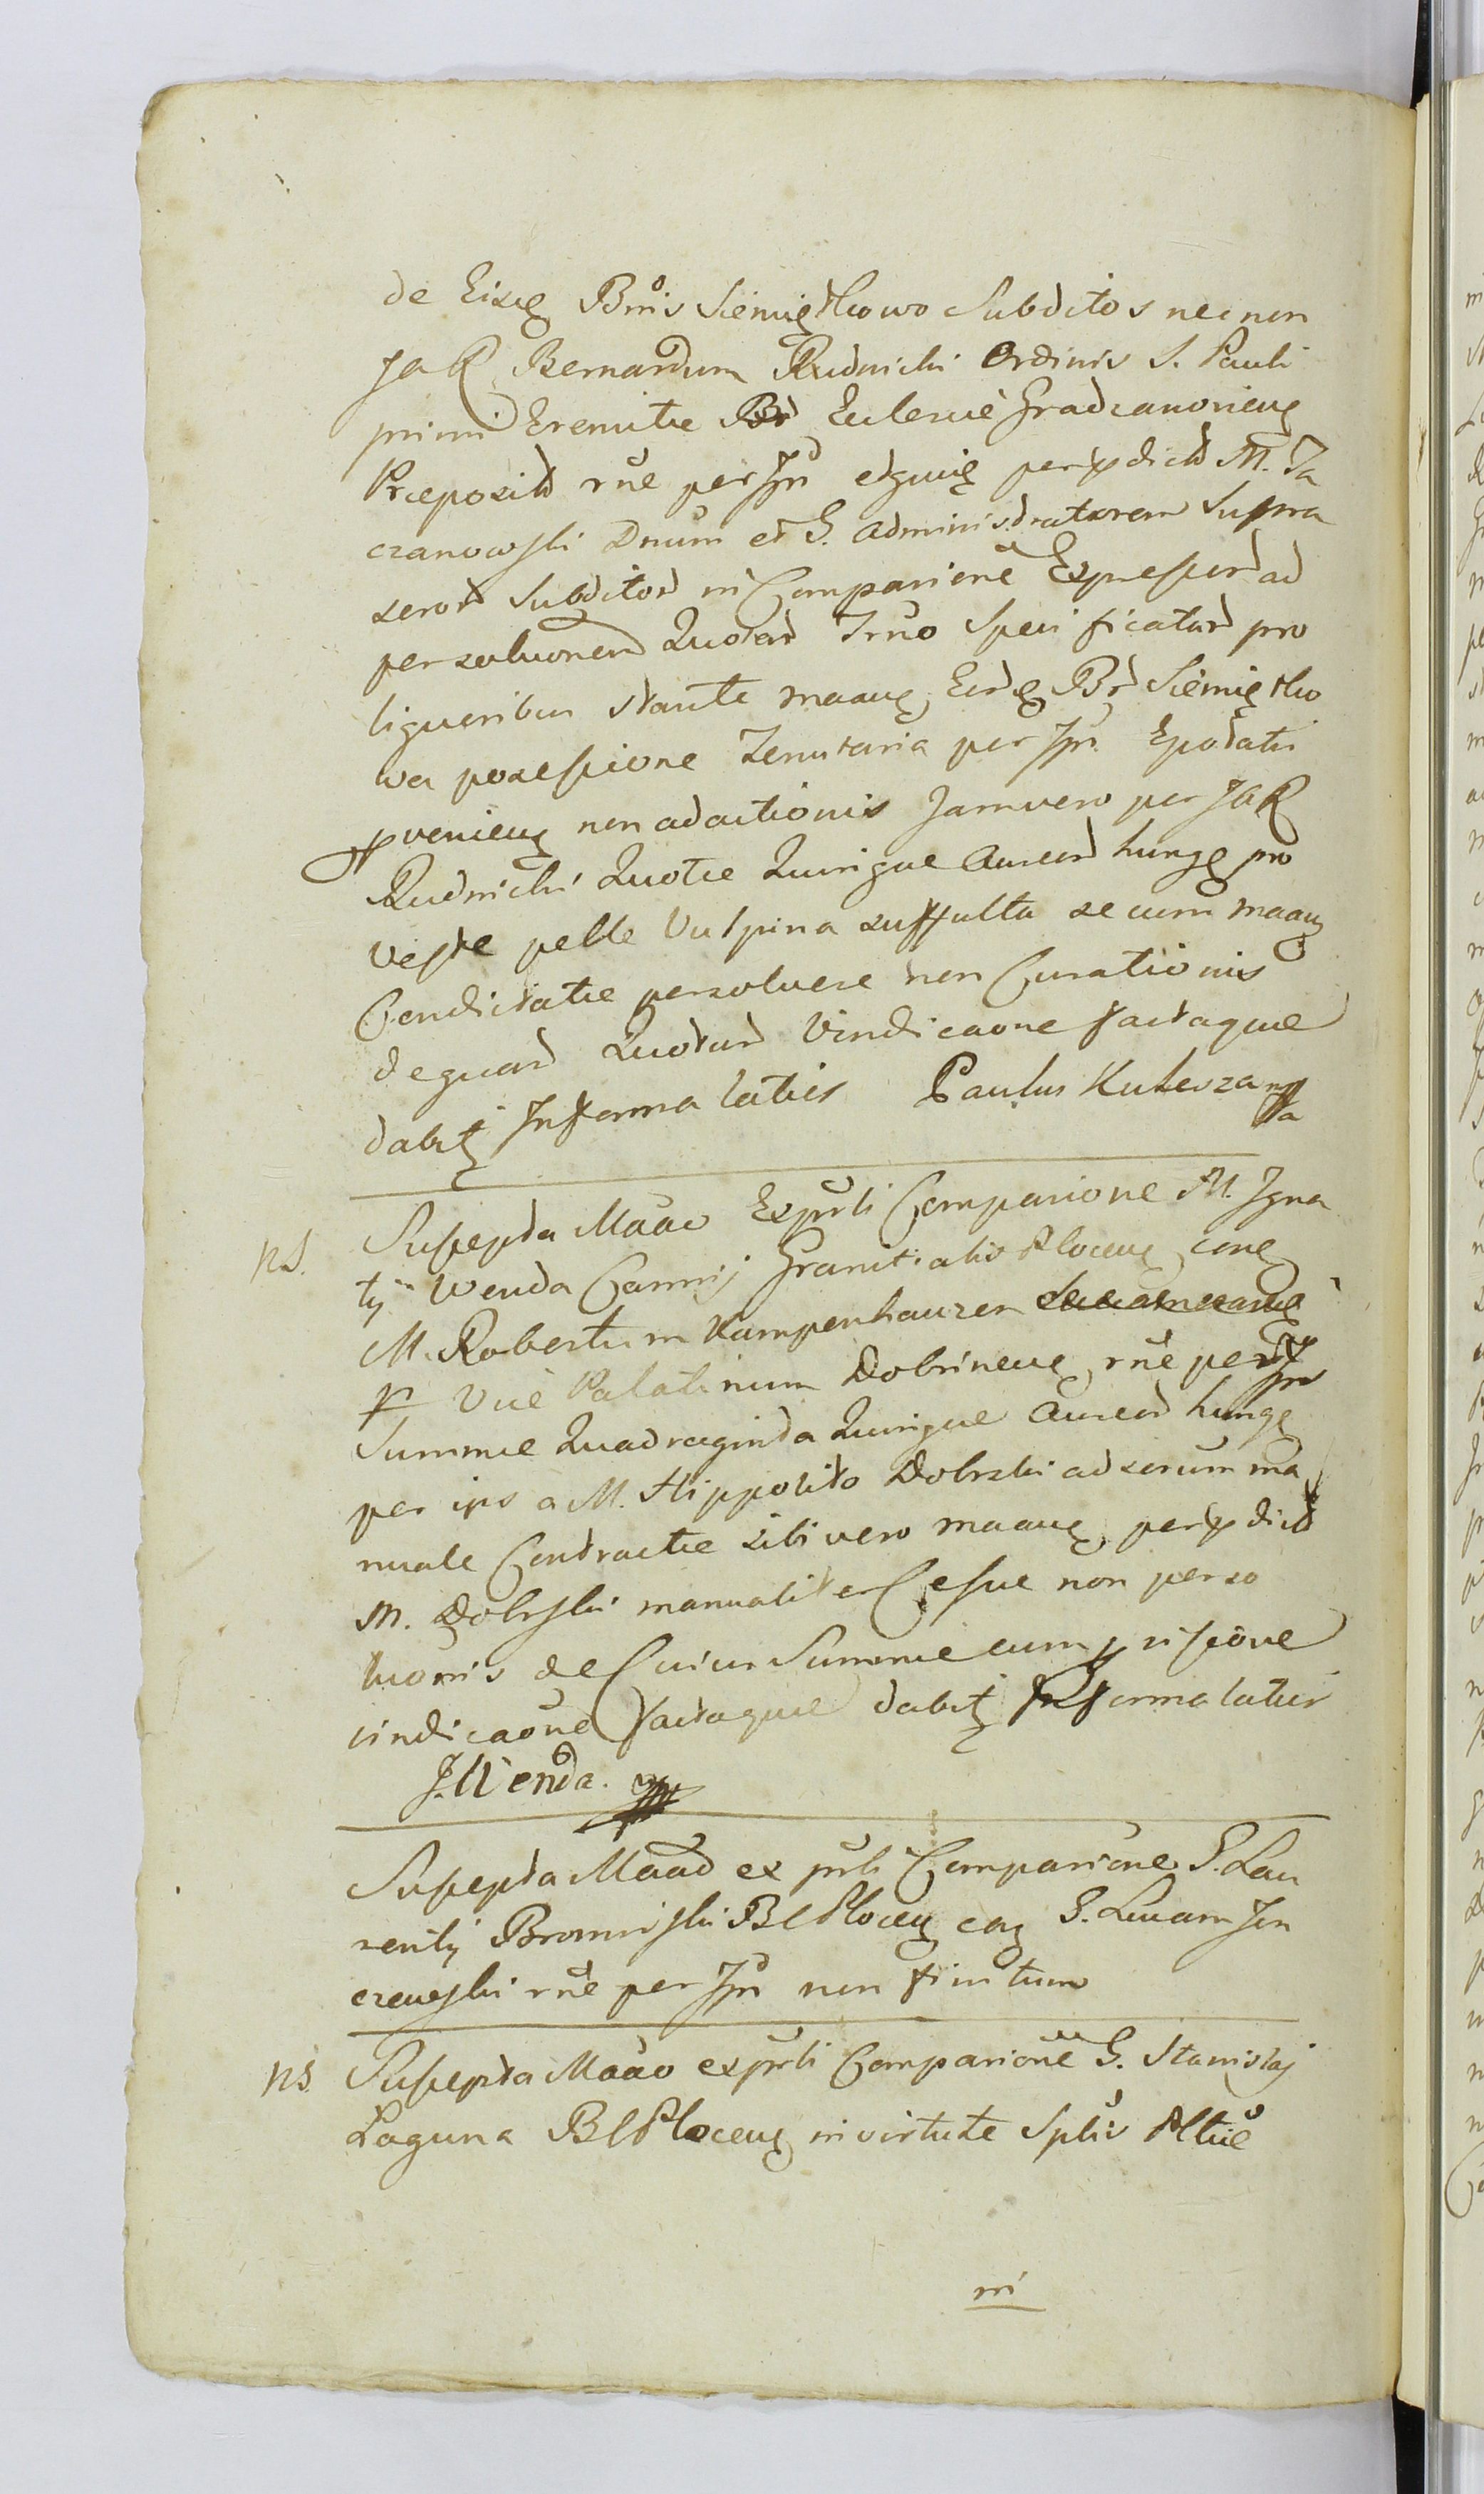 de Eisdę Bnis Siemiętkowo Subditos necnon
JaR Bernardum Rudnicki Ordinis S. Pauli
primi Eremitæ Ecclesiæ Gradzanovieng
Præposit rñe per Jpn per dict M. Ja
czanowski Dnum et G. Administratorem Supra
seros Subditos in Comparicione Expressor ad
persolvonem Quotar Trno Specificatar pro
ligueribus stante maaug Eisdę Br Siemiętko
wa possessione Tenutaria per Jpn. Epotati
pvenieng non adactionis Jamvero per JaR
Rudnicki Quotæ Quinque Aureor hungę pro
Veste pelle Vulpina suffulta se cum maaug
Condictatæ persolvere non Curationis
dequar Quotar Vindicaone factaque
dabitę In forma latius Paulus Kuleszanffa
ns. Suscepta Maao Exprti Comparione M. Igna
tij Wenda Camrij Granitialis Ploceng cong
M. Robertum Kampenhauzen
Vice Palatinum Dobrineng rñe per Jpn
Summæ Quadraginta Quinque Aureor hungę
per ips a M. Hippolito Dobrski ad serum ma
nuale Contractæ sibi vero maaug per dict
M. Dobrski manualiter Cessæ non perso
lvonis de Cuius Summæ cum provisione
vindicaone factaque dabitę In forma latius
J. Wenda.
Suscepta Maao ex prti Comparione G. Lau
rentij Bromirski BCPloceng cong G. Lucam Jen
czewski rñe per Jpn non finitum
ns Suscepta Maao exprti Comparione G. Stanislaj
Laguna BCPloceng in virtute Splis Pltiæ
ni